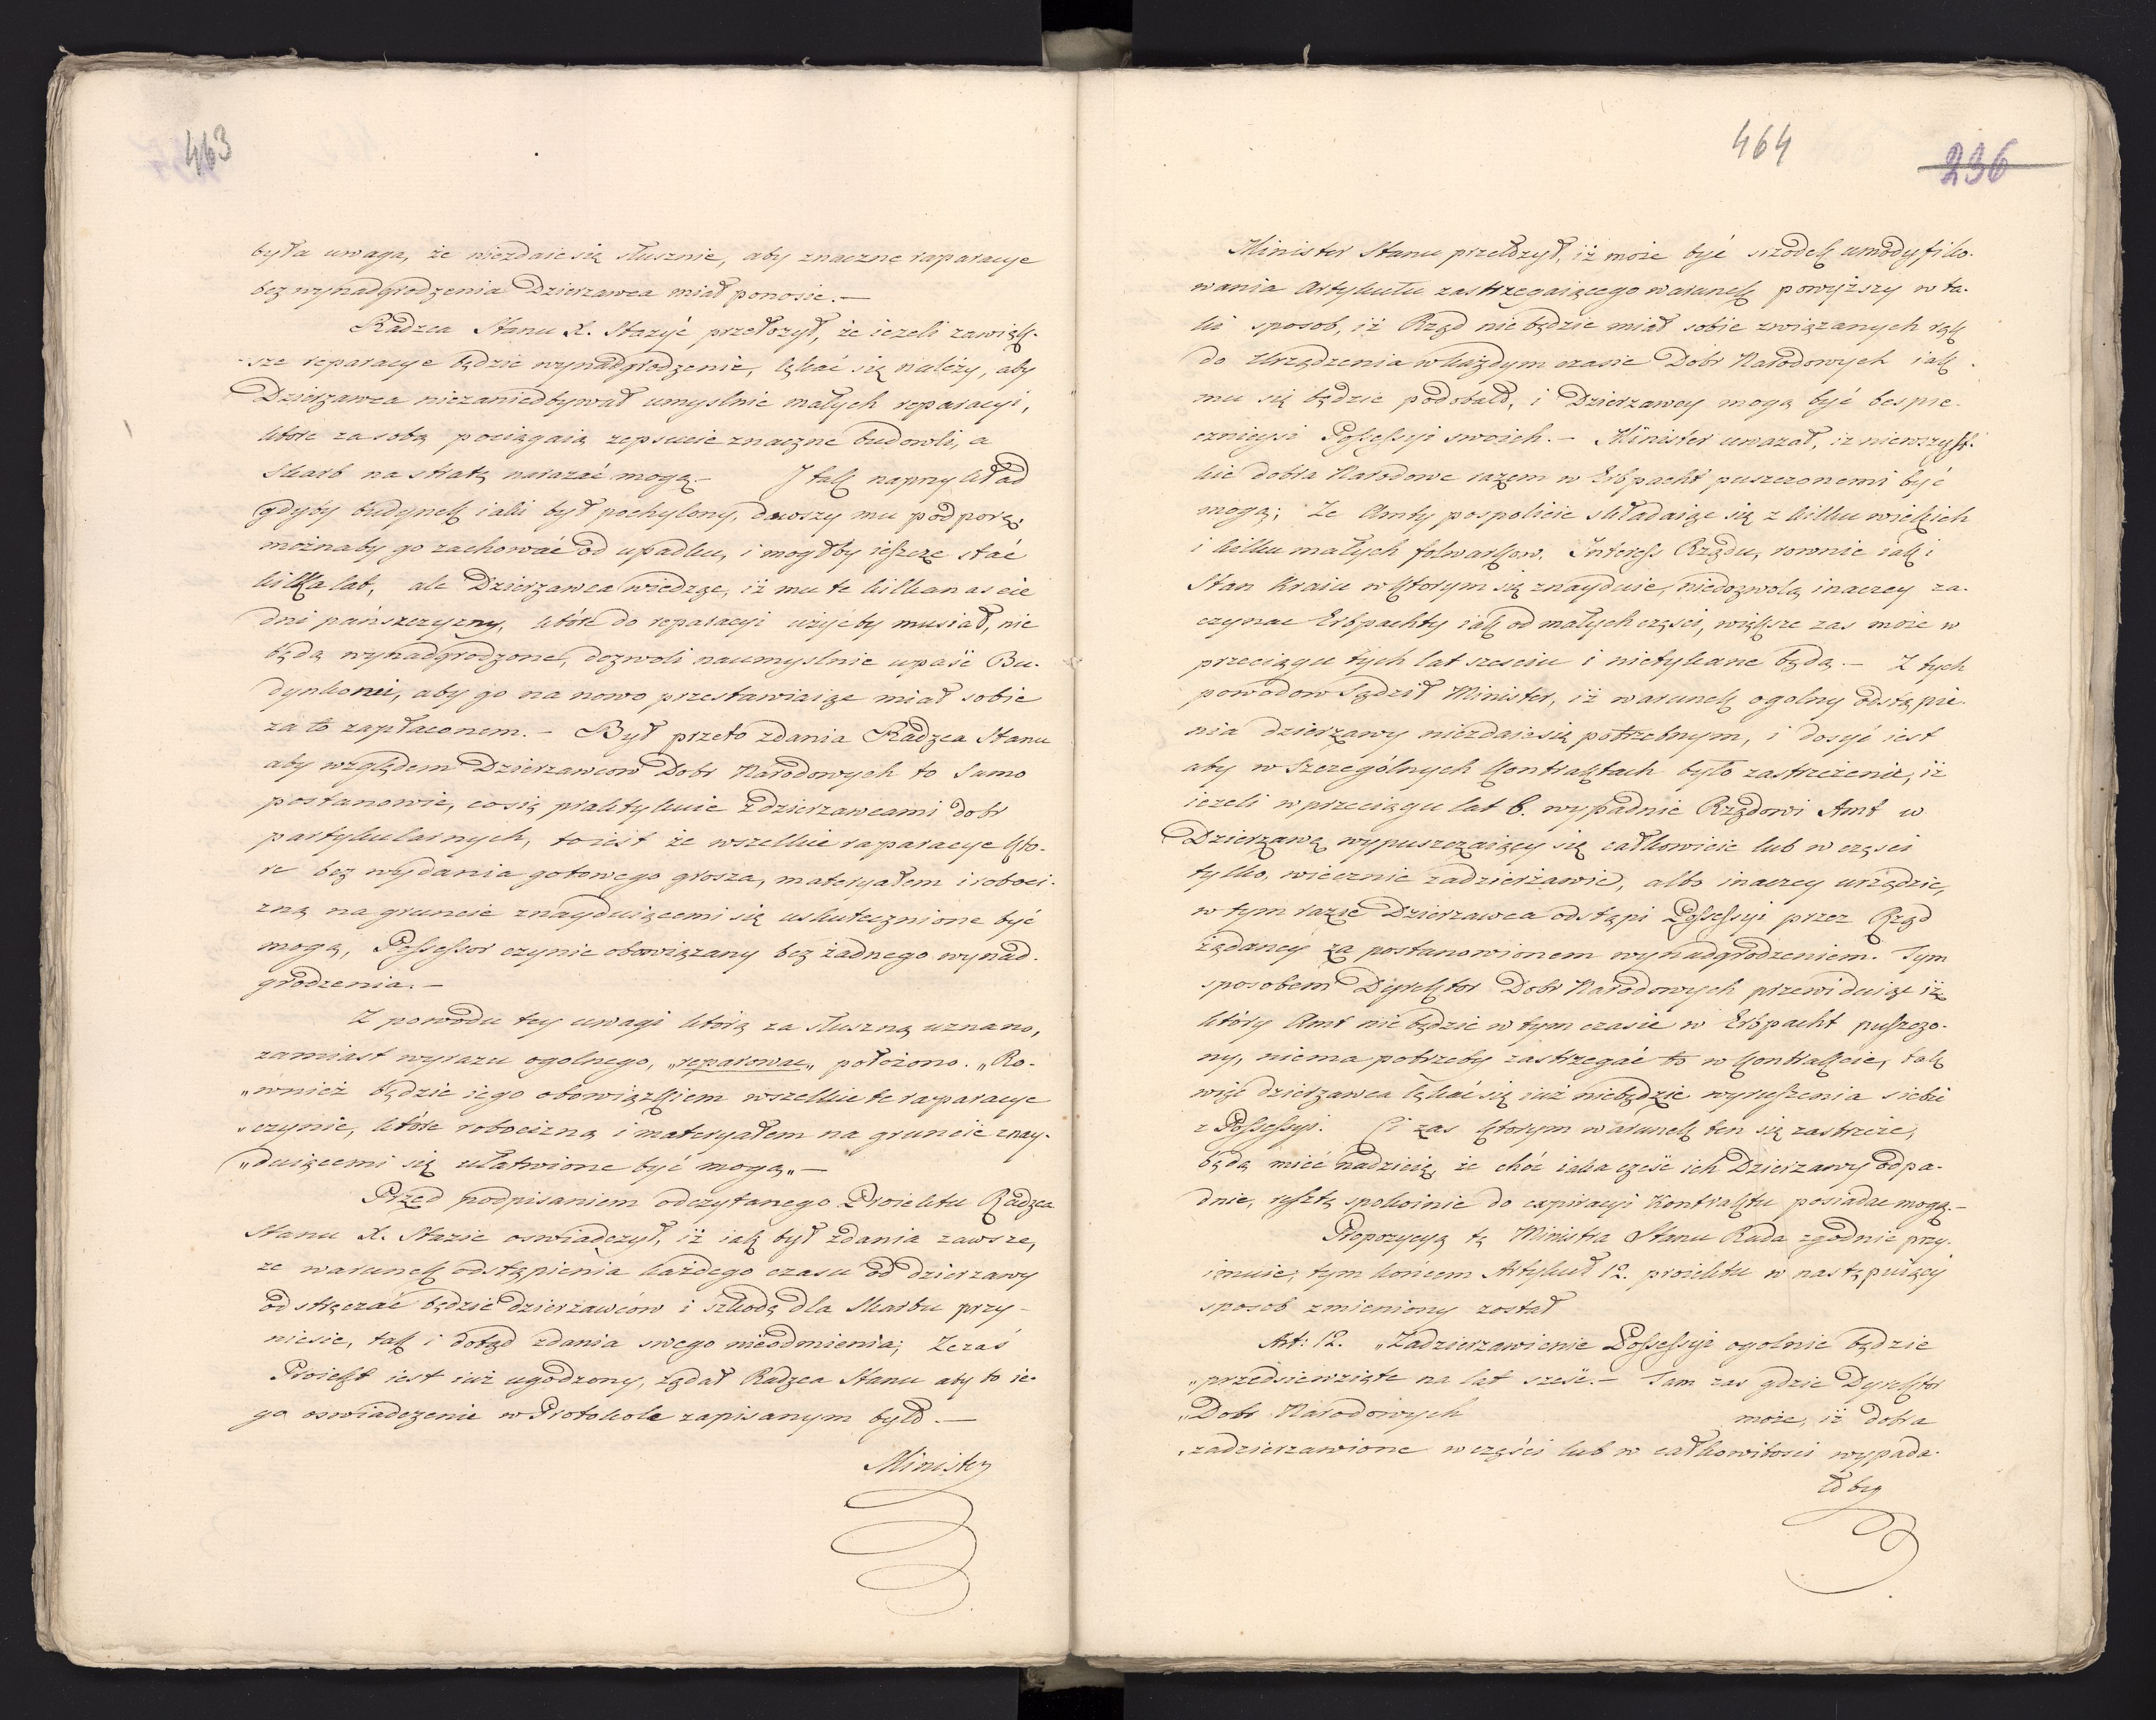 463
była uwaga, że niezdaie się słusznie, aby znaczne raparacye
bez wynadgrodzenia Dzierzawca miał ponosic. —
Radzca Stanu X. Stazyć przełozył, że ieżeli zawięk-
sze reparacye będzie wynadgrodzenie, lękać się należy, aby
Dzierzawca niezaniedbywał umyslnie małych reparacyi,
które za sobą pociągaią zepsucie znaczne budowli, a
Skarb na stratę narazać mogą. — I tak naprzykład
gdyby budynek iaki był pochylony, dawszy mu podporę,
możnaby go zachować od upadku, i mogłby ieszcze stać
kilka lat, ale Dzierzawca wiedząc, iż mu te kilkanascie
dni pańszczyzny, które do reparacyi użyćby musiał, nie
będą wynadgrodzone, dozwoli naumyslnie upaść Bu-
dynkowi, aby go na nowo przestawiaiąc miał sobie
za to zapłaconem. — Był przeto zdania Radzca Stanu
aby względem Dzierzawcow Dobr Narodowych to samo
postanowic, co się praktykuie z dzierzawcami dobr
partykularnych, to iest że wszelkie raparacye kto-
re bez wydania gotowego grosza, materyałem i roboci-
zną na gruncie znayduiącemi się uskutecznione być
mogą, Possessor czynic obowiązany bez żadnego wynad-
grodzenia. —
Z powodu tey uwagi którą za słuszną uznano,
zamiast wyrazu ogolnego, „reparowac„ położono. „Ro-
„wnież będzie iego obowiązkiem wszelkie te raparacye
„czynic, które robocizną i materyałem na gruncie znay-
„duiącemi się ułatwione być mogą„ —
Przed podpisaniem odczytanego Proiektu Radzca
Stanu X. Stazic oswiadczył, iż iak był zdania zawsze,
ze warunek odstąpienia każdego czasu od dzierzawy
odstręczać będzie dzierzawców i szkodę dla Skarbu przy-
niesie, tak i dotąd zdania swego nieodmienia; Ze zaś
Proiekt iest iuż ugodzony, żądał Radzca Stanu aby to ie-
go oswiadczenie w Protokole zapisanym było. —
Minister
464
236
Minister Stanu przełozył, iż może być srzodek umodyfiko-
wania Artykułu zastrzegaiącego warunek powyższy w ta-
ki sposob, iż Rząd nie będzie miał sobie związanych rąk
do Urządzenia w każdym czasie Dobr Narodowych iak
mu się będzie podobało, i Dzierzawcy mogą być bespie-
cznieysi Possessyi swoich. — Minister uwazał, iz niewszyst-
kie dobra Narodowe razem w Erbpacht puszczonemi być
mogą; Ze Amty pospolicie składaiąc się z kilku wielkich
i kilku małych folwarkow. Interess Rządu, rownie iak i
Stan Kraiu w ktorym się znayduie, niedozwolą inaczey za-
czynac Erbpachty iak od małych części, większe zas może w
przeciągu tych lat szesciu i nietykane będą. — Z tych
powodow sądził Minister, iż warunek ogolny odstąpie-
nia dzierzawy niezdaie się potrzebnym, i dosyć iest
aby w szczególnych kontraktach było zastrzeżenie, iż
ieżeli w przeciągu lat 6. wypadnie Rządowi Amt w
Dzierzawę wypuszczaiący się całkowicie lub w części
tylko, wiecznie zadzierżawic, albo inaczey urządzic,
w tym razie Dzierzawca odstąpi Possessyi przez Rząd
żądaney za postanowionem wynadgrodzeniem. Tym
sposobem Dyrektor Dobr Narodowych przewiduiąc iż
który Amt nie będzie w tym czasie w Erbpacht puszczo-
ny, niema potrzeby zastrzegać to w kontrakcie, tak
więc dzierzawca lękać się iuż niebędzie wyruszenia siebie
z Possessyi. Ci zas ktorym warunek ten się zastrzeże,
będą mieć nadzieię, że choć iaka część ich Dzierzawy odpa-
dnie, resztę spokoinie do expiracyi Kontraktu posiadac mogą. —
Propozycyą tę Ministra Stanu Rada zgodnie przy-
imuie, tym końcem Artykuł 12. proiektu w następuiący
sposob zmieniony został
Art: 12. „Zadzierzawienie Possessyi ogolnie będzie
„przedsiewzięte na lat sześć. — Tam zas gdzie Dyrektor
„Dobr Narodowych może, iż dobra
„zadzierzawione w części lub w całkowitosci wypada-
łoby